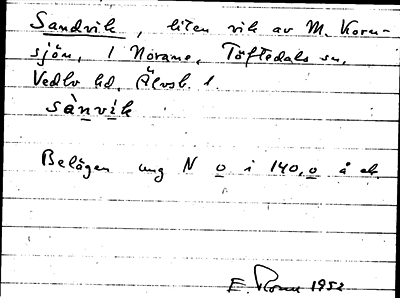 Sandvik, liten vik av M. Korn-
sjön, i Norane, Töftedals sn,
Vedbo hd, Älvsb. l.
sànvík
Belägen ung N o i 140,0 å ek.
E. 1952